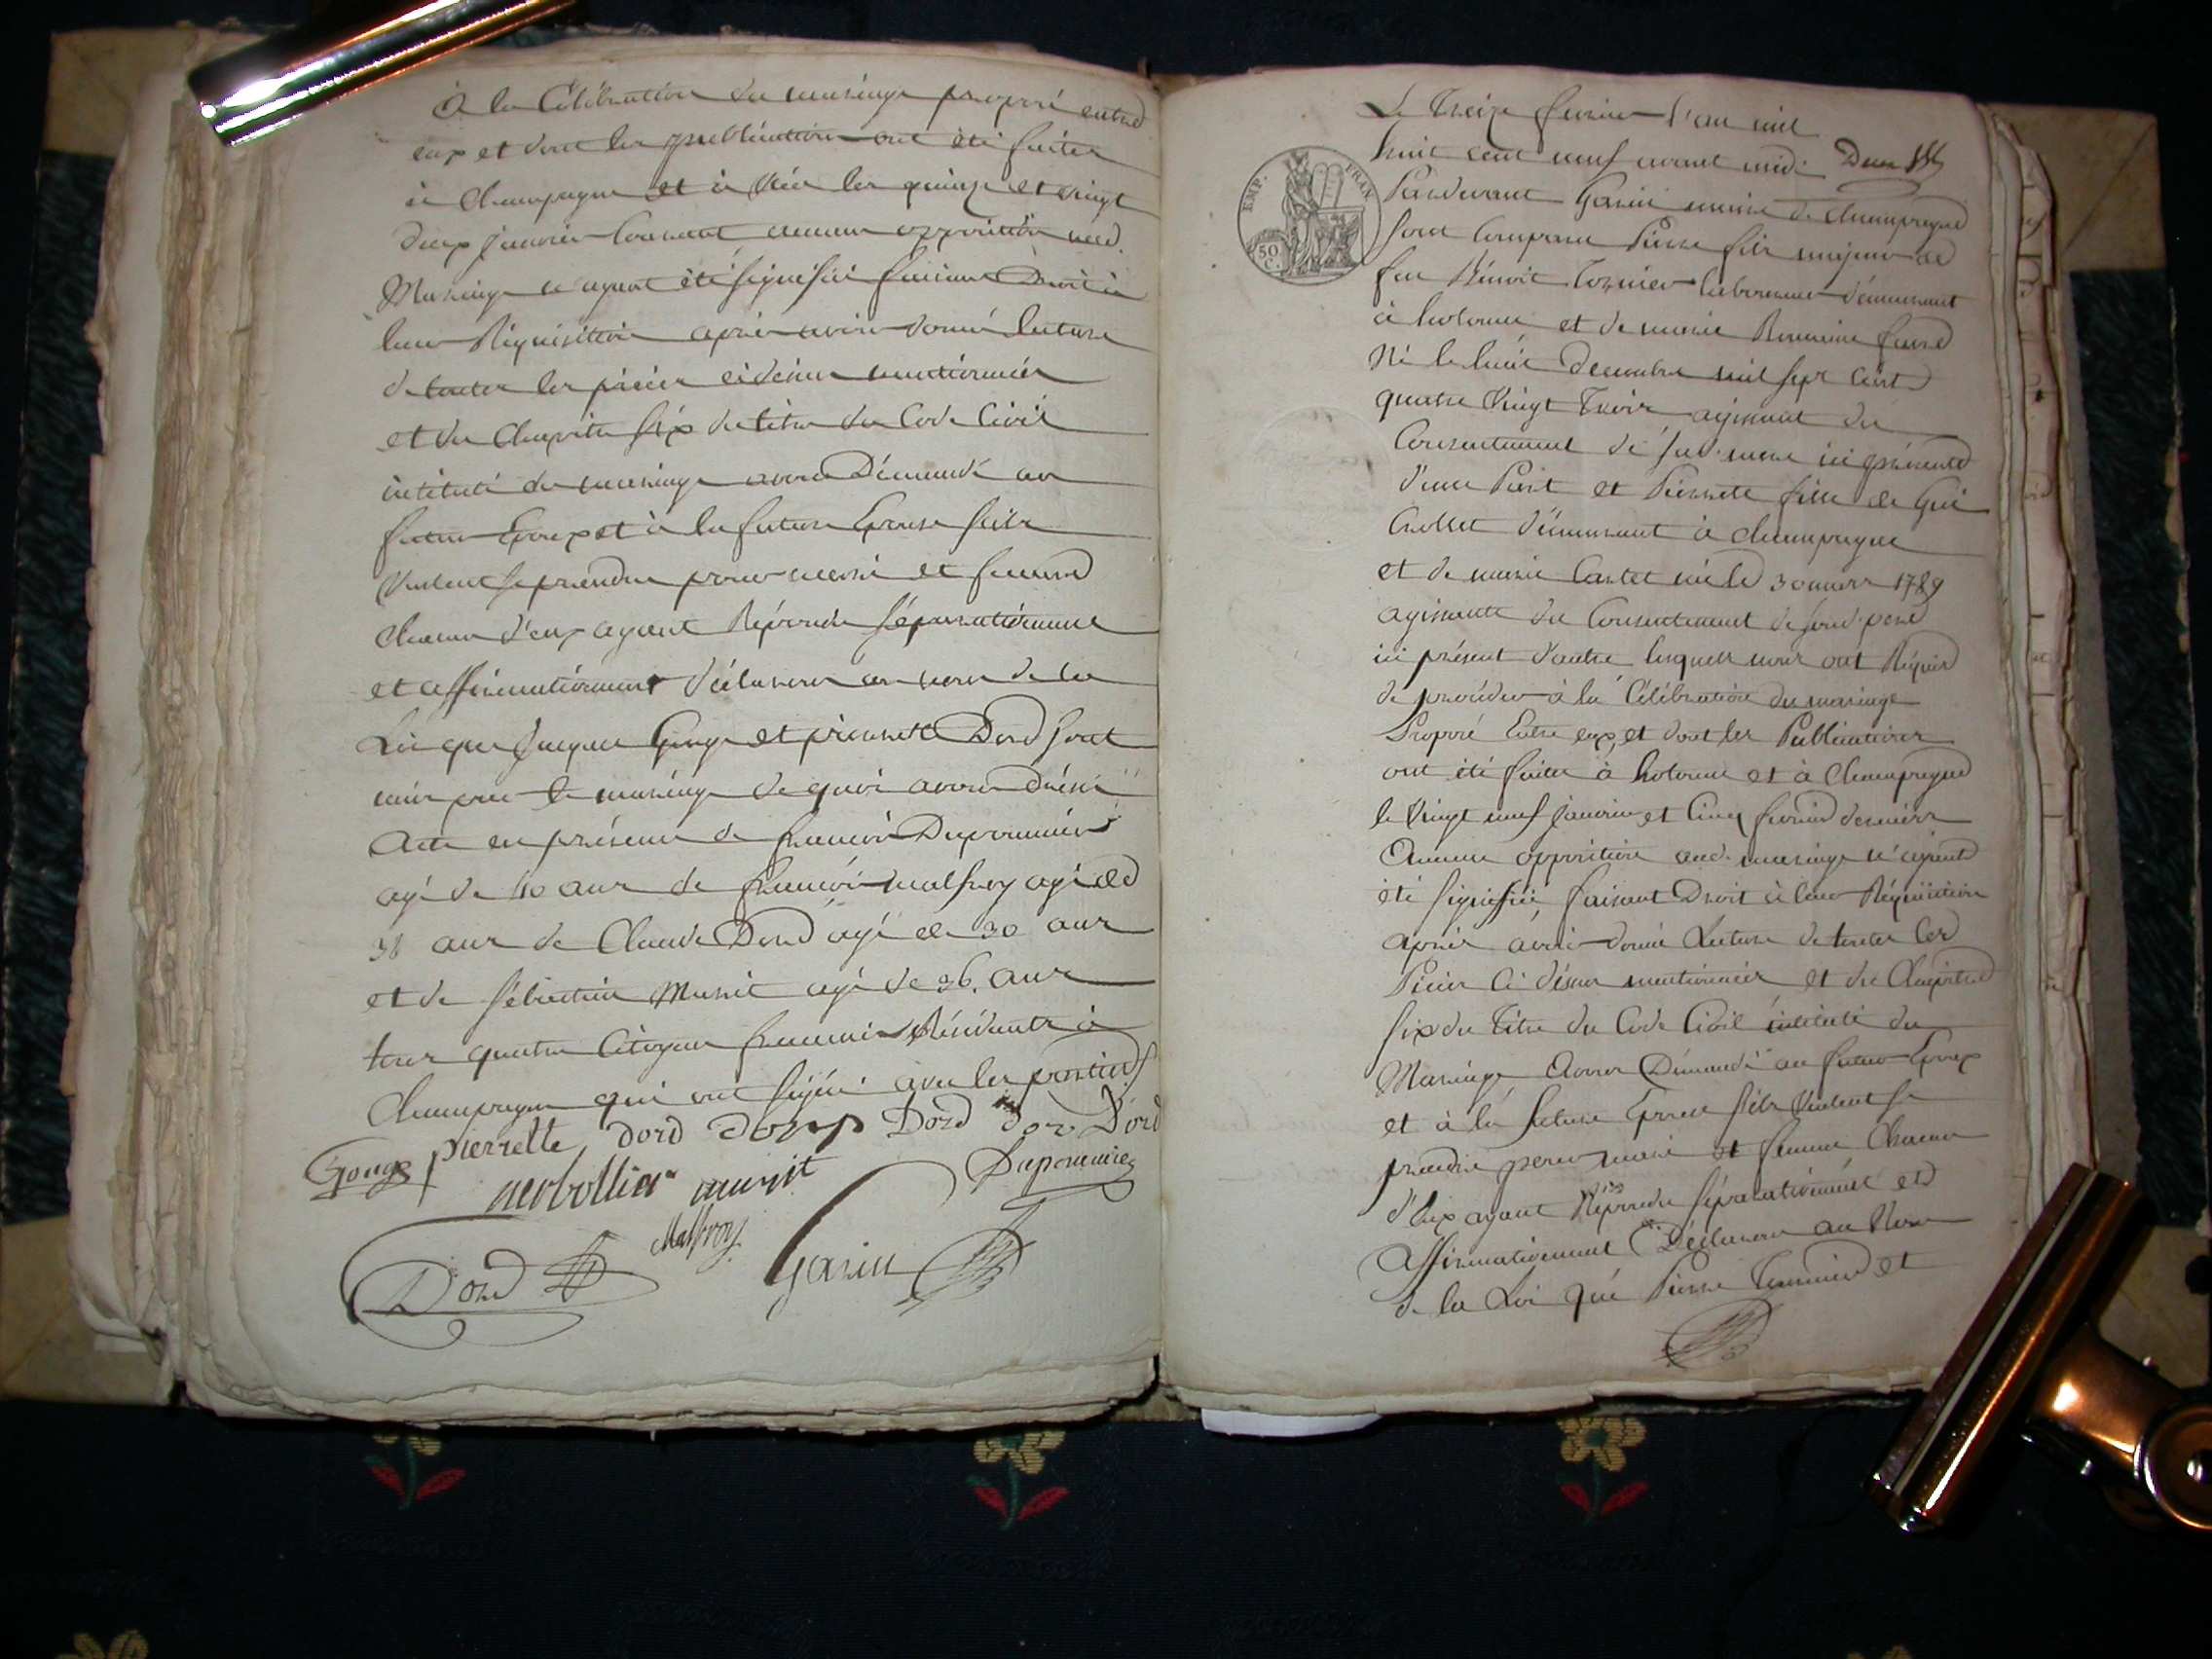 à la Célébration du mariage proposé entre
eux et dont les publications ont été faites
à Champagne et à les quinze et vingt
deux janvier Courant aucune opposition aud.
Mariage n'ayant été signifiée faisant Droit à
leur Réquisition après avoir donné lecture
de toutes les pièces cidessus mentionnées
et du Chapitre six du titre du Code Civil
intitulé du mariage avons Démandé au
futur Epoux et à la future Epouse s'ils
Veulent se prendre pour mari et femme
chacun d'eux ayant Répondu séparatément
et affirmativement déclarons au nom de la
Loi que Jacques Gonge et pierrette Dord sont
unis par le mariage de quoi avons dressé
Acte en présence de françois Duponnier
agé de 40 ans de françois malfroy agé de
38 ans de Claude Dord agé de 30 ans
et de Sébastien Musit agé de 36. ans
tous quatre Citoyens français Résidants à
Champagne qui ont signé avec les parties
Gonge pierrette dord Dord dor Dord
musit Duponnier
Malfroy
Dord Garin
Le Treize fevrier l'an mil
huit cent neuf avant midi
EMP. FRAN
50 C.
Pardevant Garin maire de Champagne
sont Comparu Pierre fils majeur de
feu Bénoit laboureur démeurant
à et de marie Romaine
Né le huit decembre mil sept Cent
quatre Vingt Trois agissant du
Consentement de sad. mere ici présente
d'une Part et Pierrette fille de Gui
démeurant à Champagne
et de marie née le 30 mars 1789
agissante du Consentement de sond. pere
ici présent d'autre lesquels nous ont Réquis
de procéder à la Célébration du mariage
Proposé Entre eux, et dont les Publications
ont été faites à et à Champagne
le Vingt neuf Janvier et Cinq fevrier derniers
Aucune opposition aud. mariage n'ayant
été signifiée, faisant Droit à leur Réquisition
après avoir donné Lecture de toutes les
Pièces Ci déssus mentionnées et du Chapitre
six du Titre du Code Civil intitulé du
Mariage Avons Démandé au futur Epoux
et à la future Epouse s'ils Veulent se
prendre pour mari et femme Chacun
d'Eux ayant Répondu séparatément et
affirmativement Déclarons au Nom
de la Loi que Pierre et